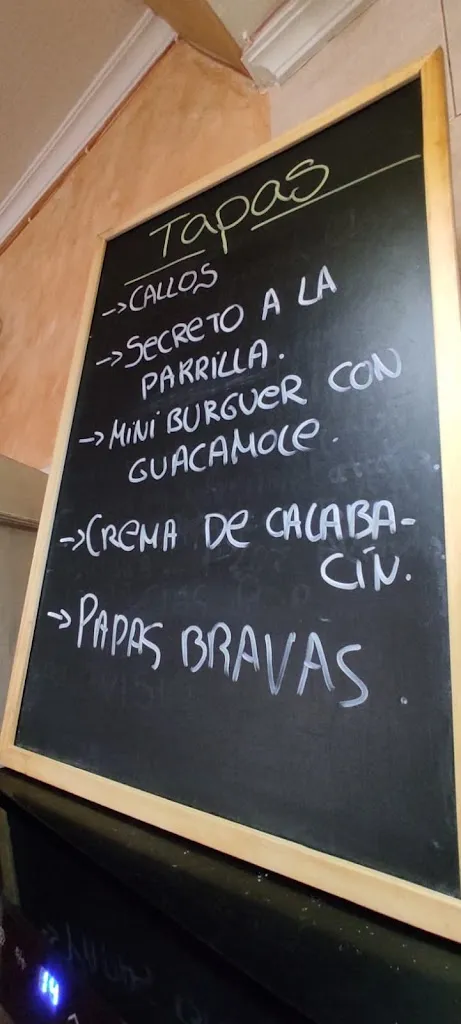 Tapas
->CALLOS
->SECRETO A LA
PARRILLA.
->MINI BURGUER CON
GUACAMOLE.
->CREMA DE CALABA-
CÍN.
->PAPAS BRAVAS